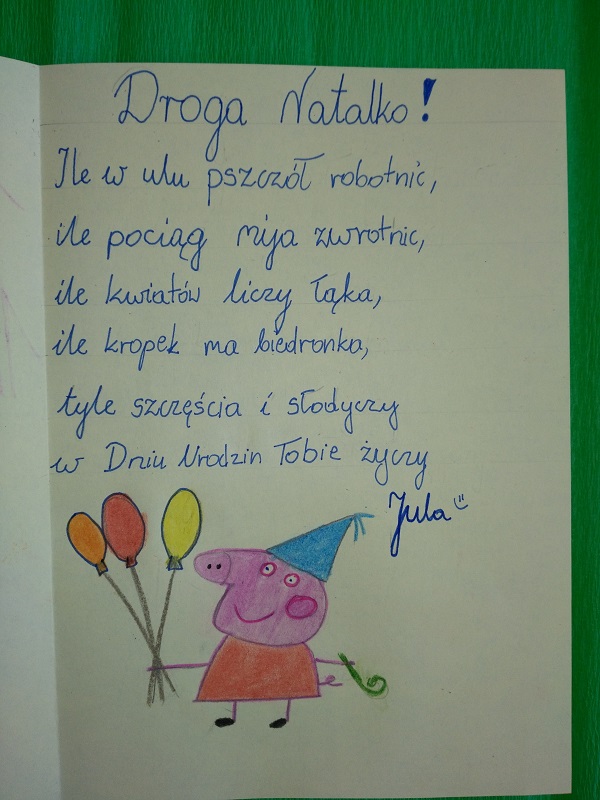 Droga Natalko!
Ile w ulu pszczół robotnic,
ile pociąg mija zwrotnic,
ile kwiatów liczy łąka,
ile kropek ma biedronka,
tyle szczęścia i słodyczy
w Dniu Urodzin Tobie życzy
Jula